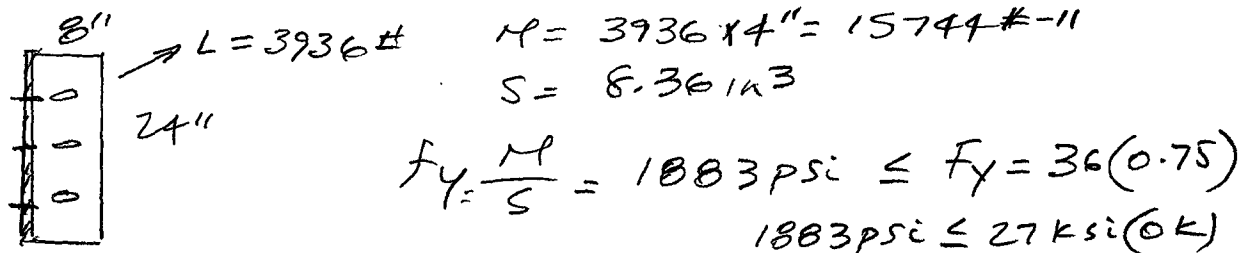 8"
L = 3936#
M = 3936 x 4" = 15744#-11
S = 8.36 in3
24"
fy = M/S = 1883 psi ≤ Fy = 36(0.75)
1883 psi ≤ 27 ksi (OK)